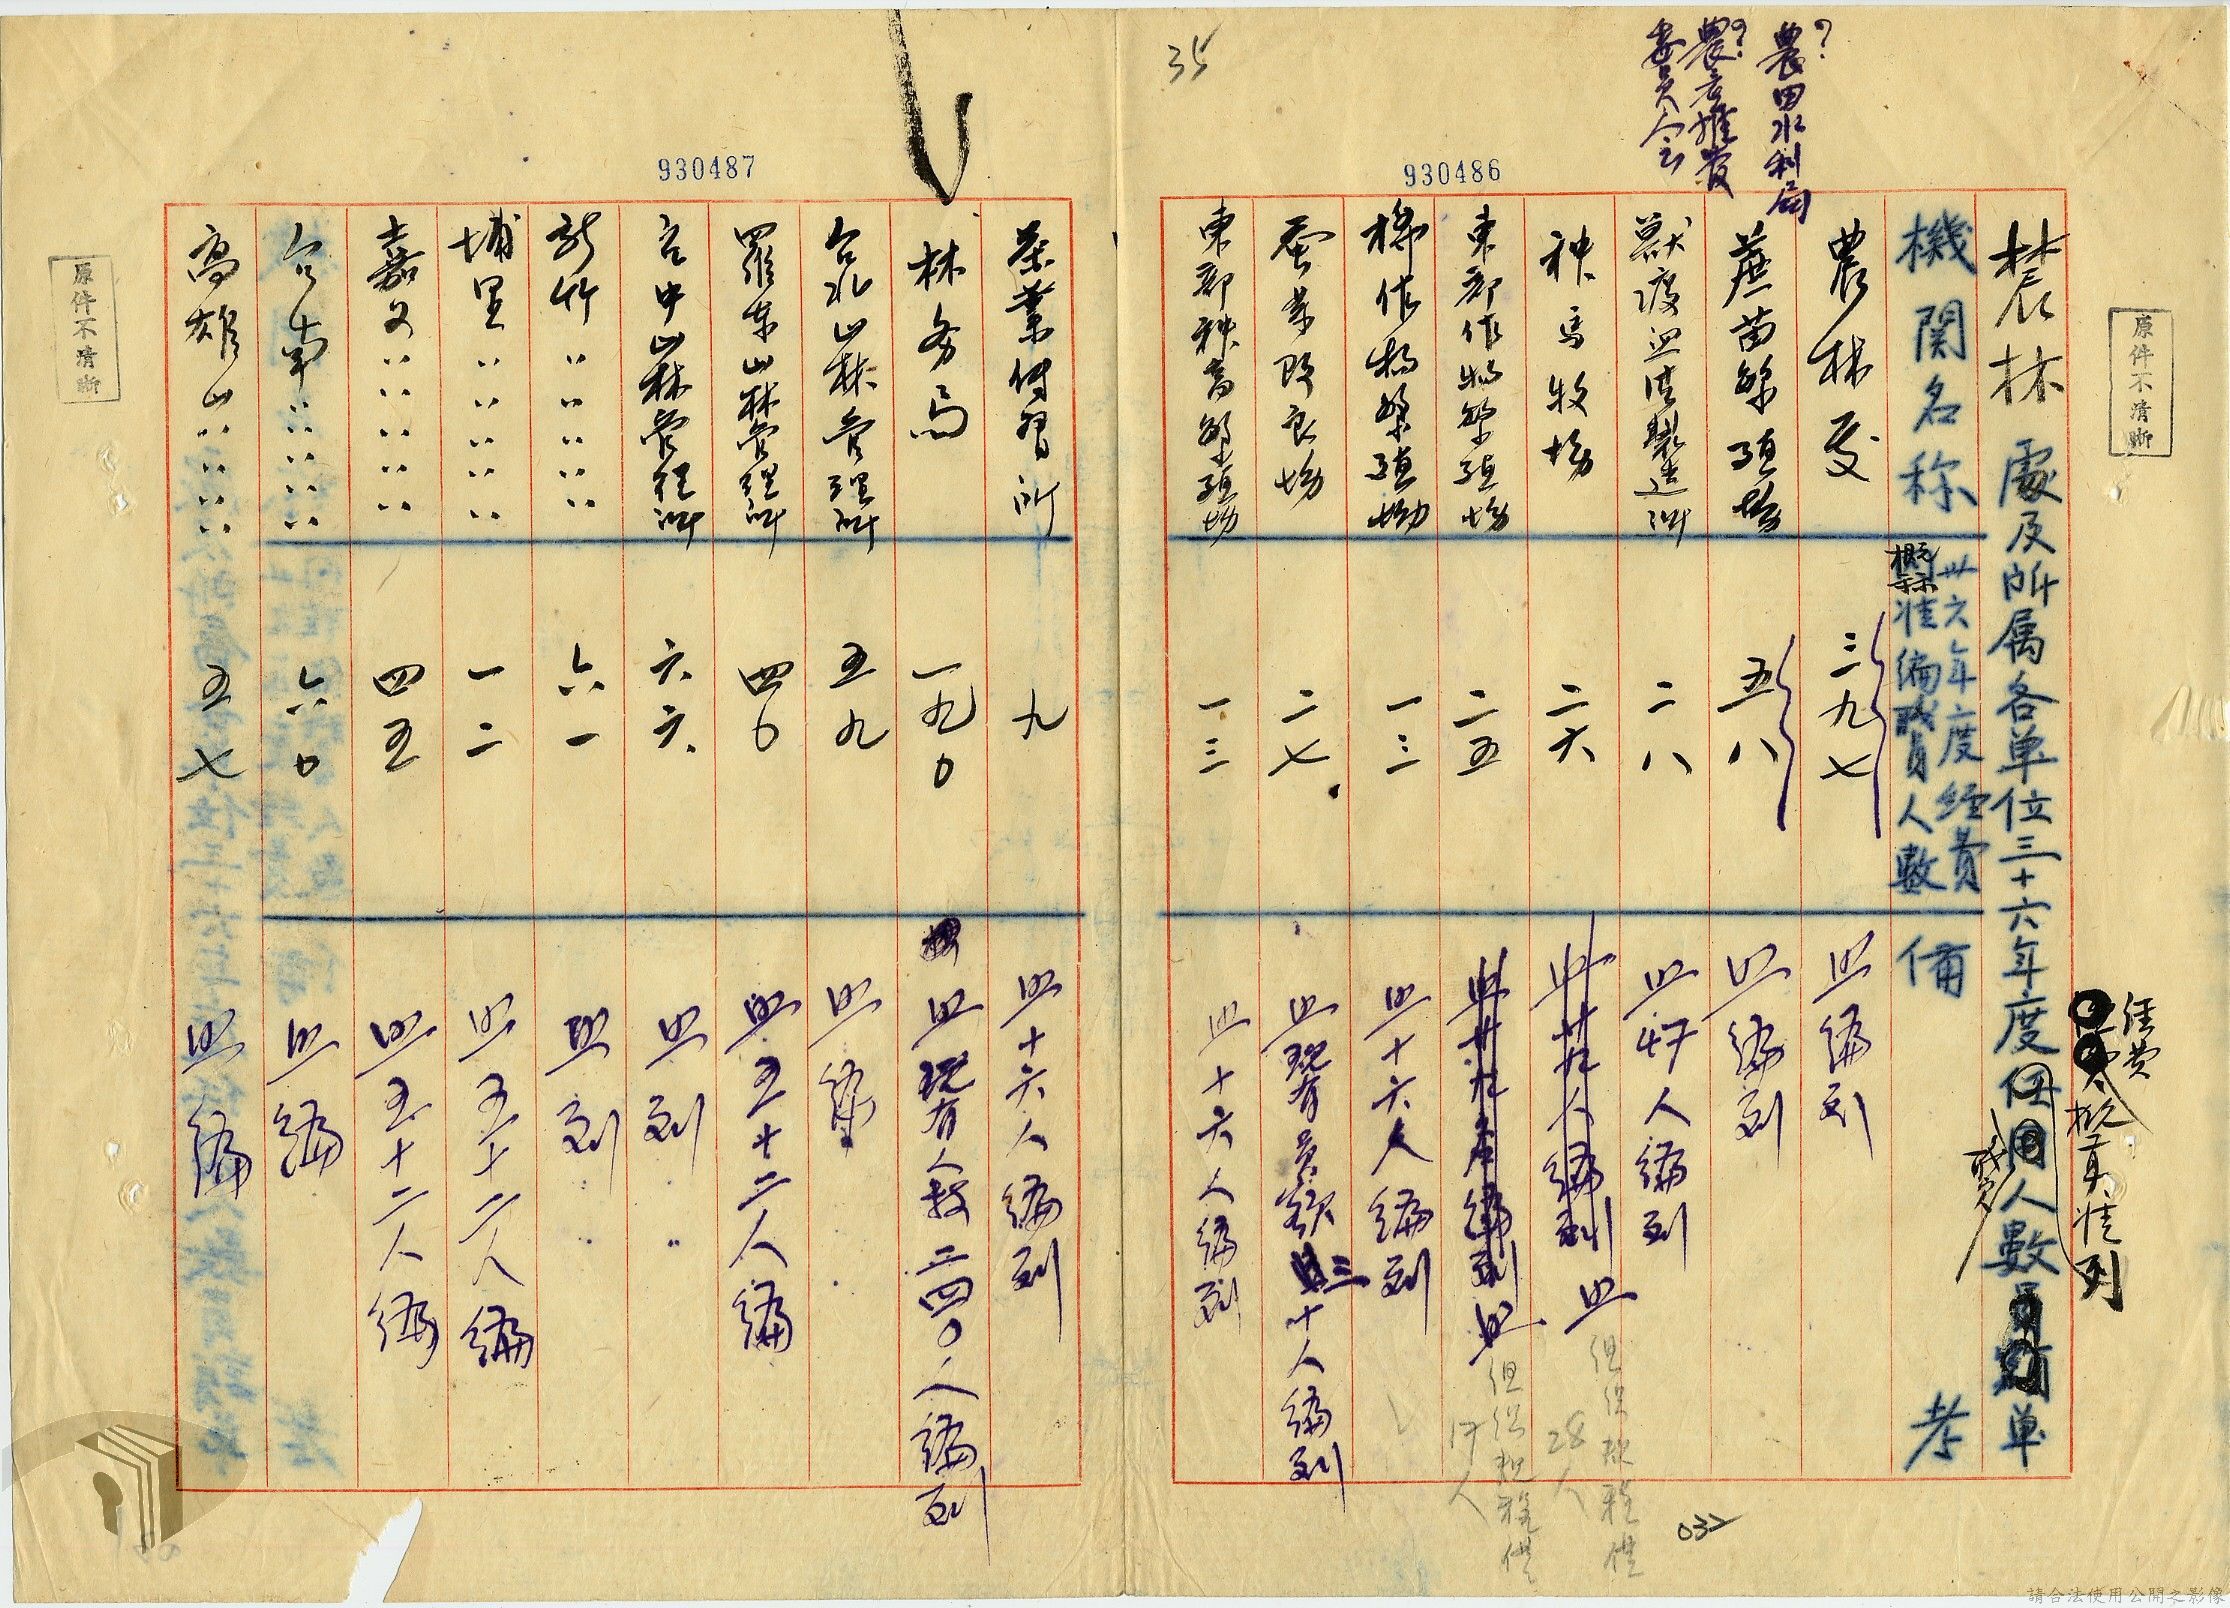 農林處及所属各単位三十六年度任用人數単
經費概算准列
職員
機関名称
卅六年度經費
概算准編職員人數
備考
?農田水利局
?農業推廣
委員会
農林処
三九七
照編列
蔗苗繁殖場
五八
照編列
獸疫血清製造所
二八
照47人編列
种馬牧場
二六
照廿九人編列
照
但組織規程僅
28人
東部作物繁殖場
二五
照
但組織規程僅
17人
棉作物繁殖場
一三
照十六人編列
蚕業改良場
二七
照現有員額三十人編列
東部种畜繁殖場
一三
照十六人編列
茶業傳習所
九
照十六人編列
林务局
一九0
照現有人數二四〇人編列
台北山林管理所
五九
照編
羅东山林管理所
四0
照五十二人編
台中山林管理所
六六
照列
新竹〃〃〃〃
六一
照列
埔里〃〃〃〃〃
一二
照五十二人編
嘉义〃〃〃〃〃
四五
照五十二人編
台南〃〃〃〃
六0
照編
高雄山〃〃〃〃
五七
照編
35
930486
930487
032
原件不清晰
原件不清晰
請合法使用公開之影像